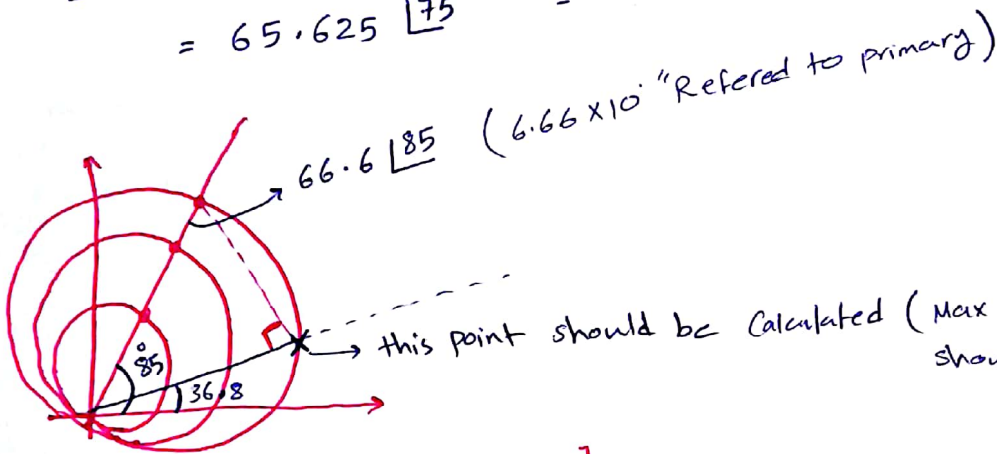 = 65.625 ∠75
66.6 ∠85 (6.66 × 10 "Refered to primary)
this point should be Calculated (Max
85°
36.8